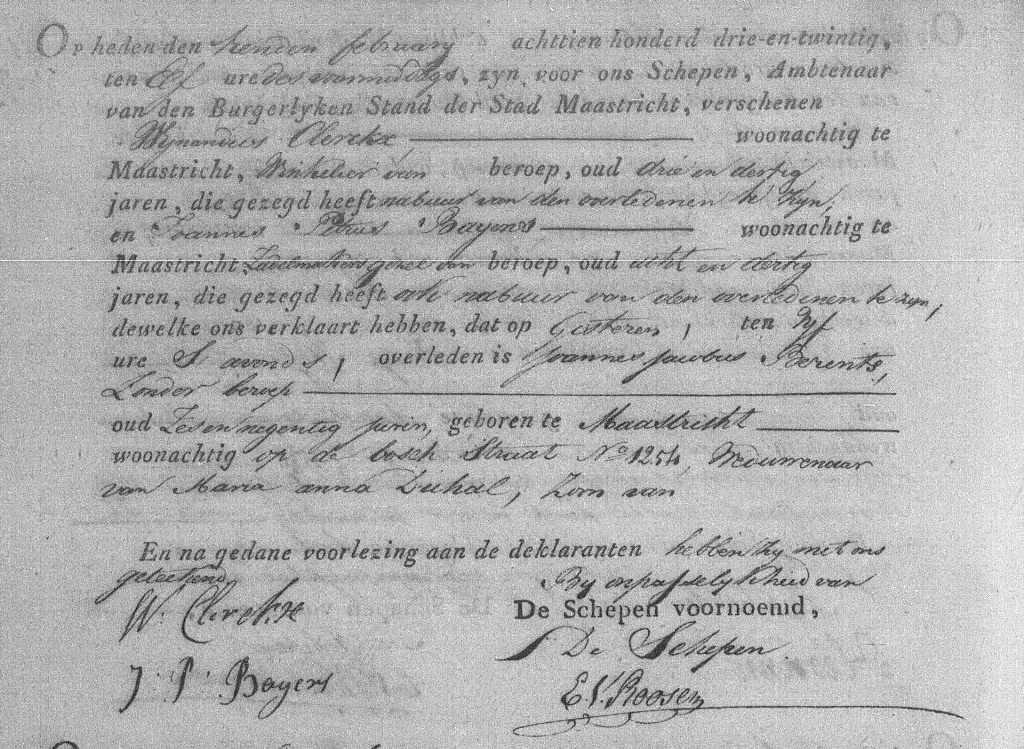 Op heden den tienden february achttien honderd drie-en-twintig,
ten Elf ure des voormiddags, zyn voor ons Schepen, Ambtenaar
van den Burgerlyken Stand der Stad Maastricht, verschenen
Wynandus Clerckx woonachtig te
Maastricht, Winkelier van beroep, oud drie en dertig
jaren, die gezegd heeft nabuur van den overledenen te Zyn,
en Joannes Petrus Bayens woonachtig te
Maastricht Zadelmakers gezel van beroep, oud acht en dertig
jaren, die gezegd heeft ook nabuur van den overledenen te zyn,
dewelke ons verklaart hebben, dat op Gisteren, ten Vyf
ure S avonds, overleden is Joannes jacobus Berents,
Zonder beroep
oud Zes en negentig jaren, geboren te Maastricht
woonachtig op de bosch Straat No 1254, Weduwenaar
van Maria anna Duhal, Zoon van
En na gedane voorlezing aan de deklaranten hebben Zy met ons
geteekend.
By onpasselykheid van
W. Clerckx De Schepen voornoemd,
De Schepen
J. P. Bayers
E. V. Roosen